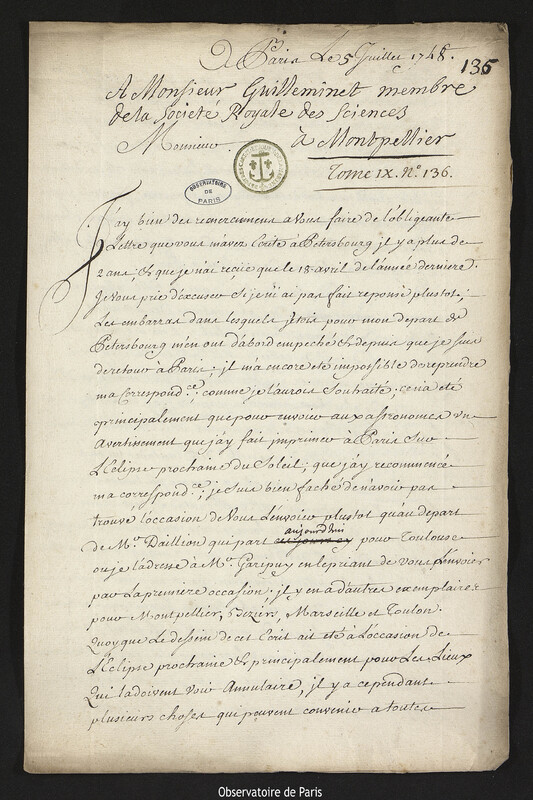 A Paris Le 5 Juillet 1748.
135
A Monsieur Guilleminet membre
de la Societé Royale des Sciences
Monsieur. à Montpellier
Tome IX. N.º 136.
OBSERVATOIRE
DE
PARIS
J'ay bien des remerciemens a vous faire de l'obligeante
Lettre que vous m'avez Ecrite à Petersbourg il y a plus de
2 ans, & que je n'ai reçüe que le 18 avril de l'année derniere.
Je Vous prie d'excuser si je n'i ai pas fait reponse plustot;
Les embarras dans lesquels j'etois pour mon depart de
Petersbourg m'en ont d'abord empeché & depuis que je suis
de retour à Paris il m'a encore eté impossible de reprendre
ma Correspond.ce comme je l'aurois Souhaité; ce n'a eté
principalement que pour envoier aux astronomes un
Avertissement que j'ay fait imprimer à Paris sur
L'Eclipse prochaine du Soleil; que j'ay recommencé
ma correspond.ce; je suis bien faché de n'avoir pas
trouvé l'occasion de Vous L'envoier plustot qu'au depart
aujourd'hui
de M.r Daillion qui part pour Toulouse
ou je l'adresse à M.r Garipuy en le priant de vous L'envoier
par La premiere occasion; il y en a d'autres exemplaires
pour Montpellier, Beziers, Marseille et Toulon.
Quoyque Le dessein de cet Ecrit ait eté à L'occasion de
L'Eclipse prochaine & principalement pour Les Lieux
Qui la doivent voir Annulaire, il y a cependant
plusieurs choses qui peuvent convenir a toutes
Observatoire de Paris